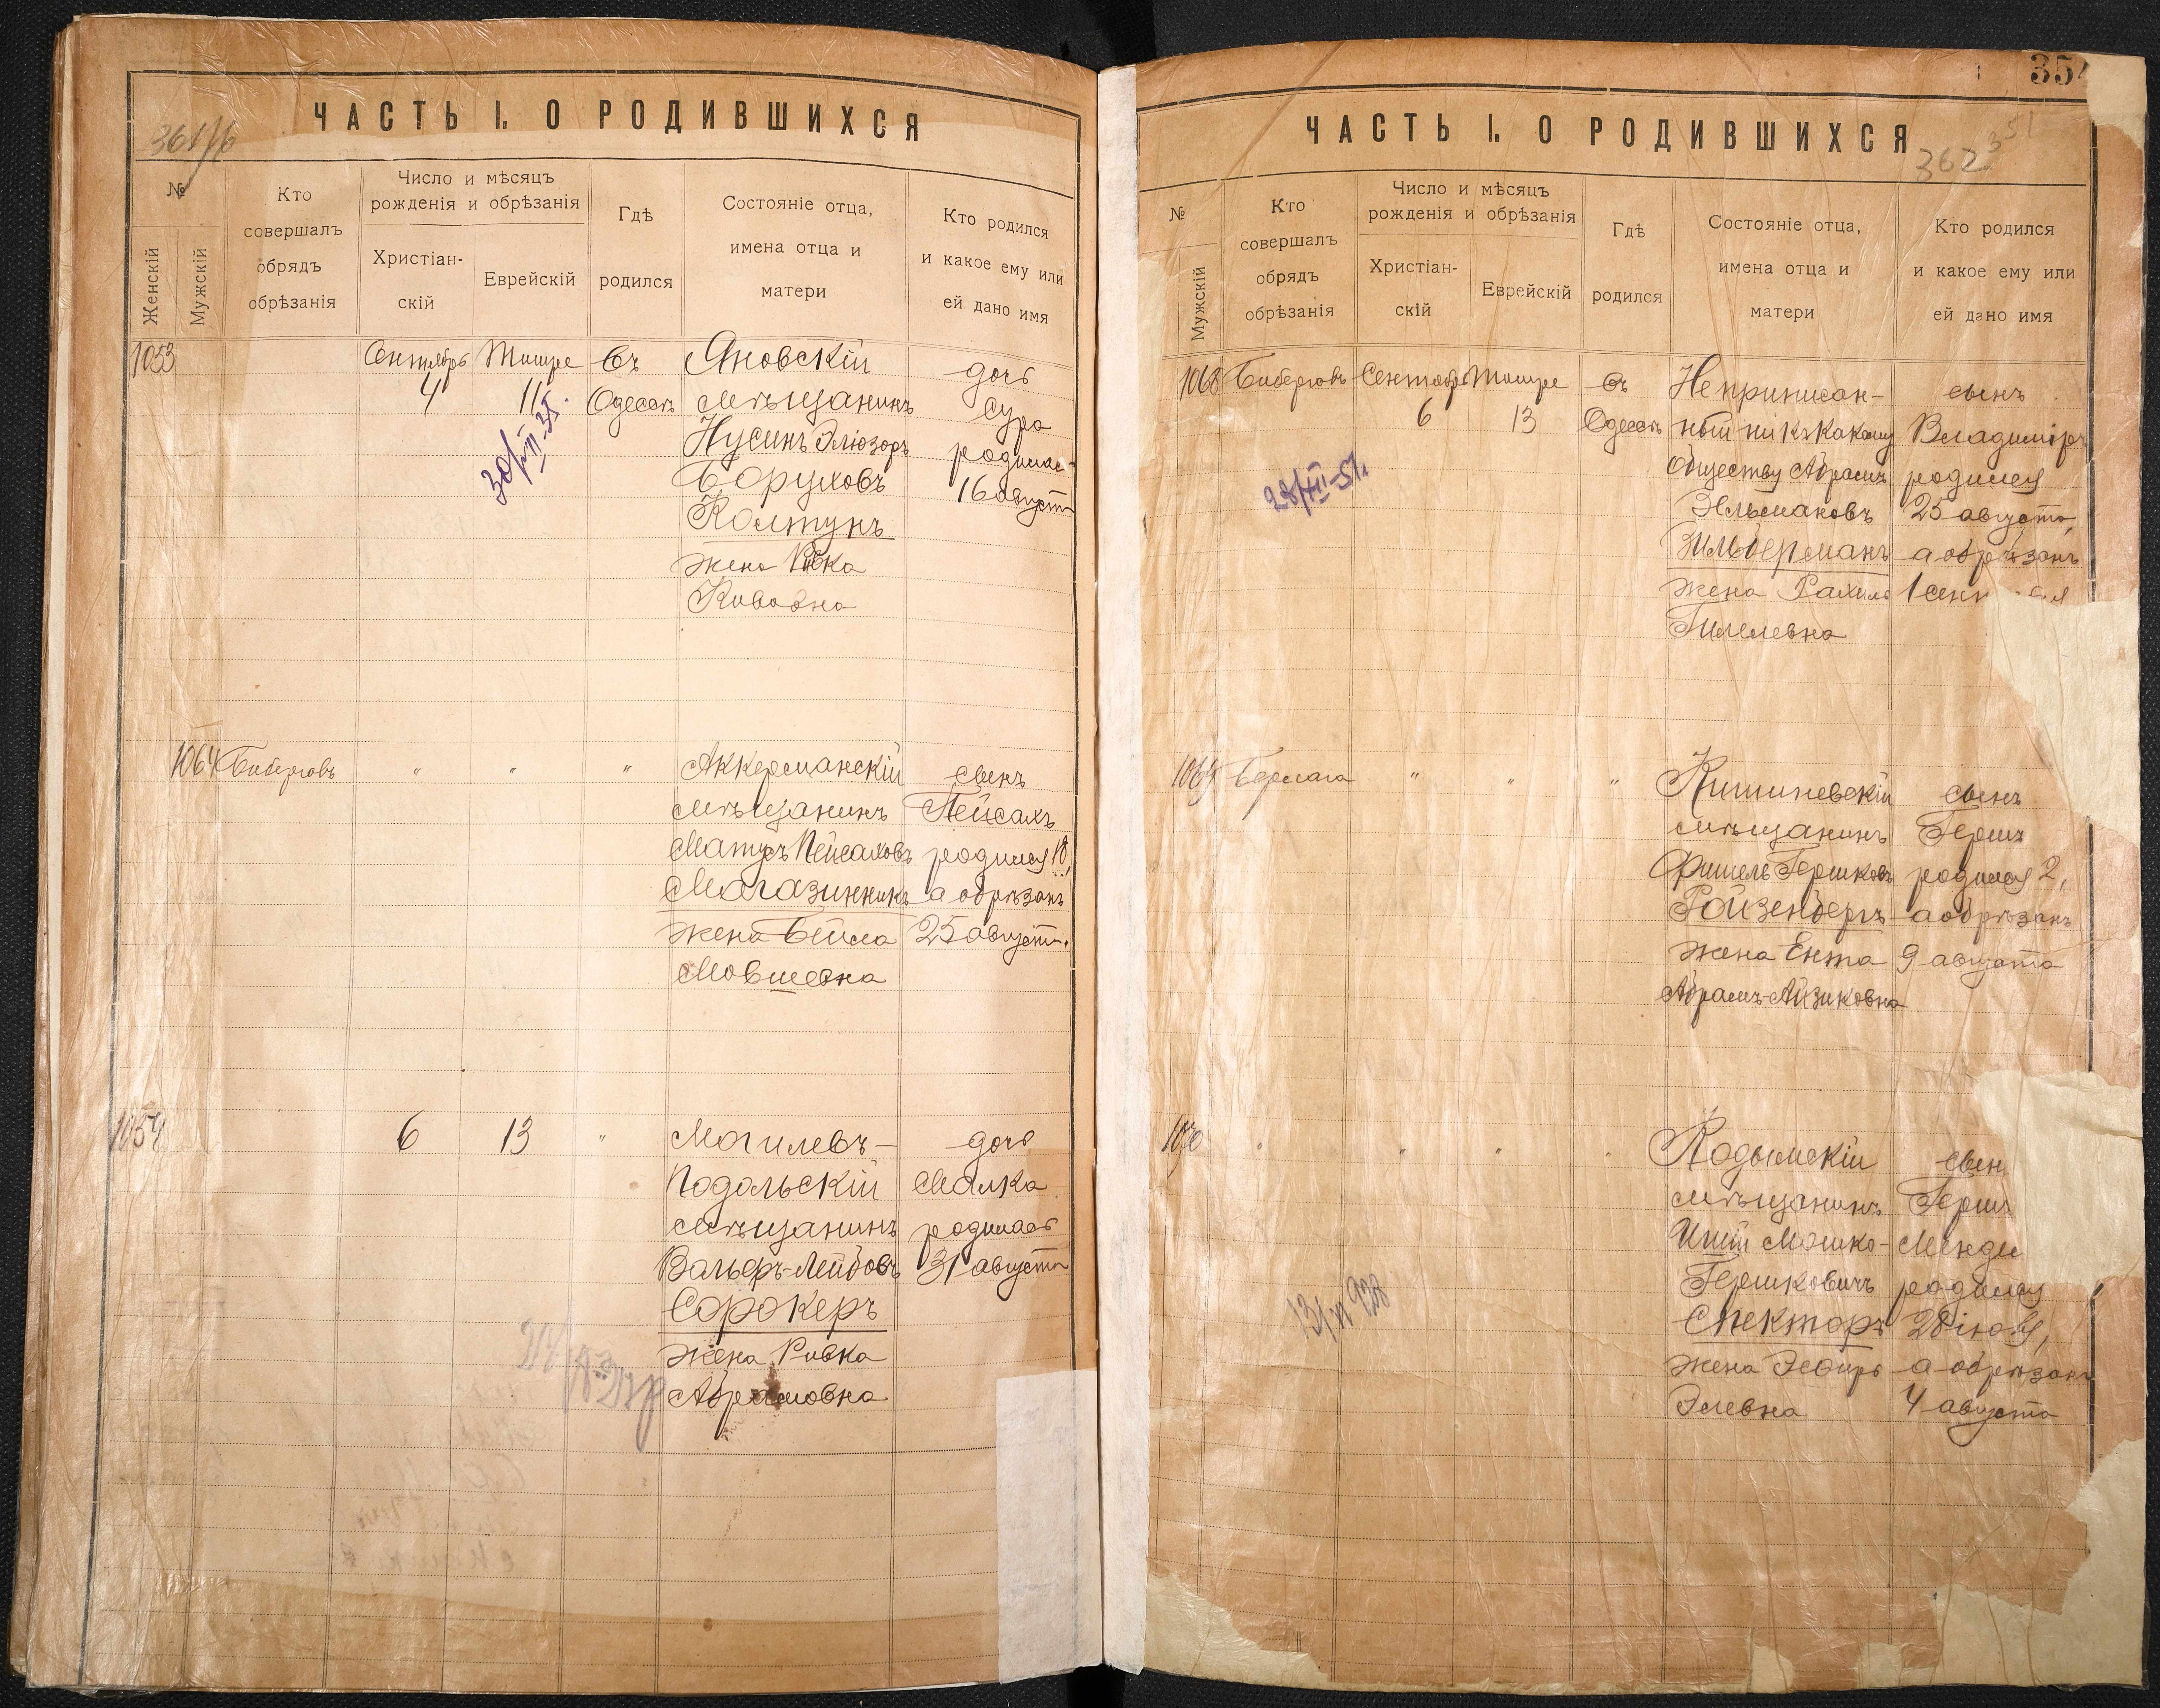 ЧАСТЬ I. О РОДИВШИХСЯ
№
Женскій
Мужскій
Кто
совершалъ
обрядъ
обрѣзанія
Число и мѣсяцъ
рожденія и обрѣзанія
Христіан-
скій
Еврейскій
Гдѣ
родился
Состояніе отца,
имена отца и
матери
Кто родился
и какое ему или
ей дано имя
1053
Сентябрь
4
Тишре
11
Въ
Одессѣ
Яновскій
мѣщанинъ
Нусинъ Эліозоръ
Боруховъ
Колтунъ
жена Ривка
дочь
Сура
родилась
16 августа
1064
Биберговъ
"
"
"
Аккерманскій
мѣщанинъ
Матусъ Пейсаховъ
Магазинникъ
жена Бейла
Мовшевна
сынъ
Пейсахъ
родился 18,
а обрѣзанъ
25 августа.
1054
6
13
"
Могилевъ-
Подольскій
мѣщанинъ
Сорокеръ
жена Ривка
Абрамовна
дочь
Малка
родилась
31 августа
354
ЧАСТЬ I. О РОДИВШИХСЯ
362
351
№
Мужскій
Кто
совершалъ
обрядъ
обрѣзанія
Число и мѣсяцъ
рожденія и обрѣзанія
Христіан-
скій
Еврейскій
Гдѣ
родился
Состояніе отца,
имена отца и
матери
Кто родился
и какое ему или
ей дано имя
1068
Биберговъ
Сентябрь
6
Тишре
13
Въ
Одессѣ
Неприписан-
ный ни къ какому
обществу Абрамъ
Зильберманъ
жена Рахиль
Гилелевна
сынъ
Владиміръ
родился
25 августа,
а обрѣзанъ
1069
Бормага
"
"
"
Кишиневскій
мѣщанинъ
Фишель Гершковъ
Ройзенбергъ
жена Ента
Абрамъ-Айзиковна
сынъ
Гершъ
родился 2,
а обрѣзанъ
9 августа
1070
"
"
"
"
Кодымскій
мѣщанинъ
Мошко-
Гершковичъ
Спекторъ
жена Эсфирь
Элевна
сын
Герш
Менде
родился
28 іюля,
а обрѣзанъ
4 августа